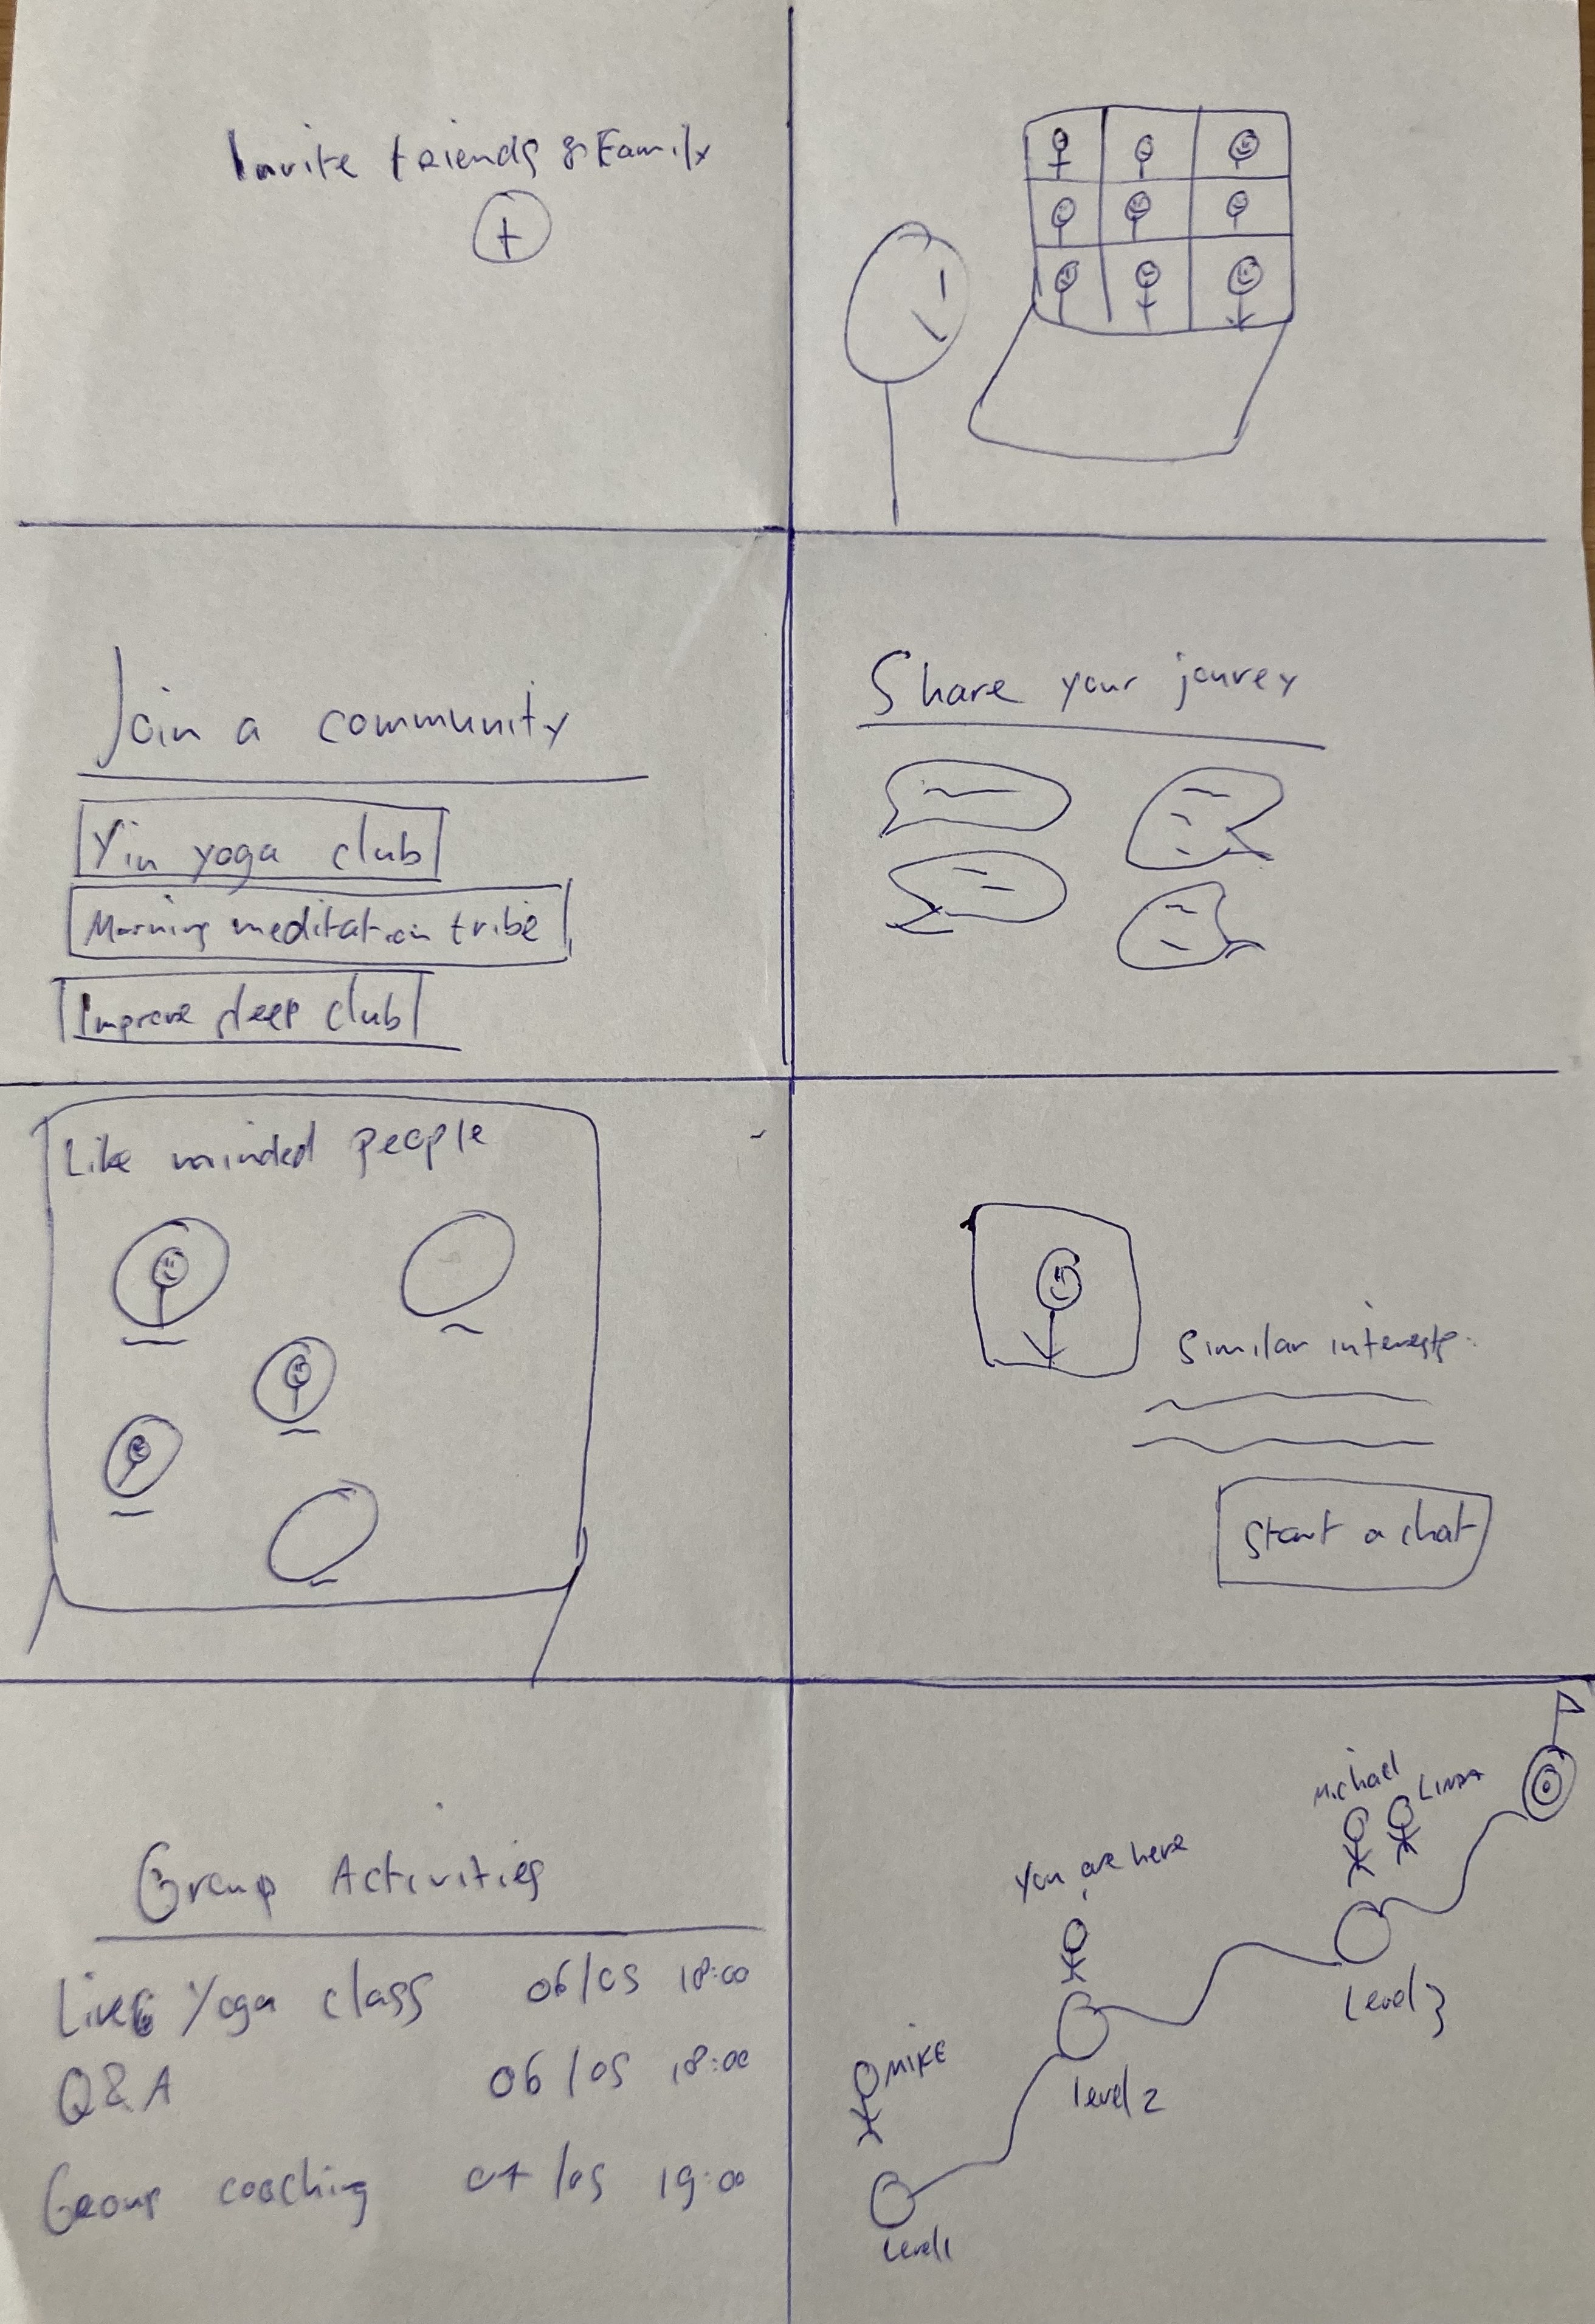 Invite friends & Family
+
Join a community
Yin yoga club
Morning meditation tribe
Improve sleep club
Share your jourey
Like minded people
Similar interests:
Start a chat
Group Activities
Live Yoga class 06/05 18:00
Q&A 06/05 18:00
Group coaching 07/05 19:00
Michael
LINDA
You are here
Level 3
MIKE
level 2
Level 1